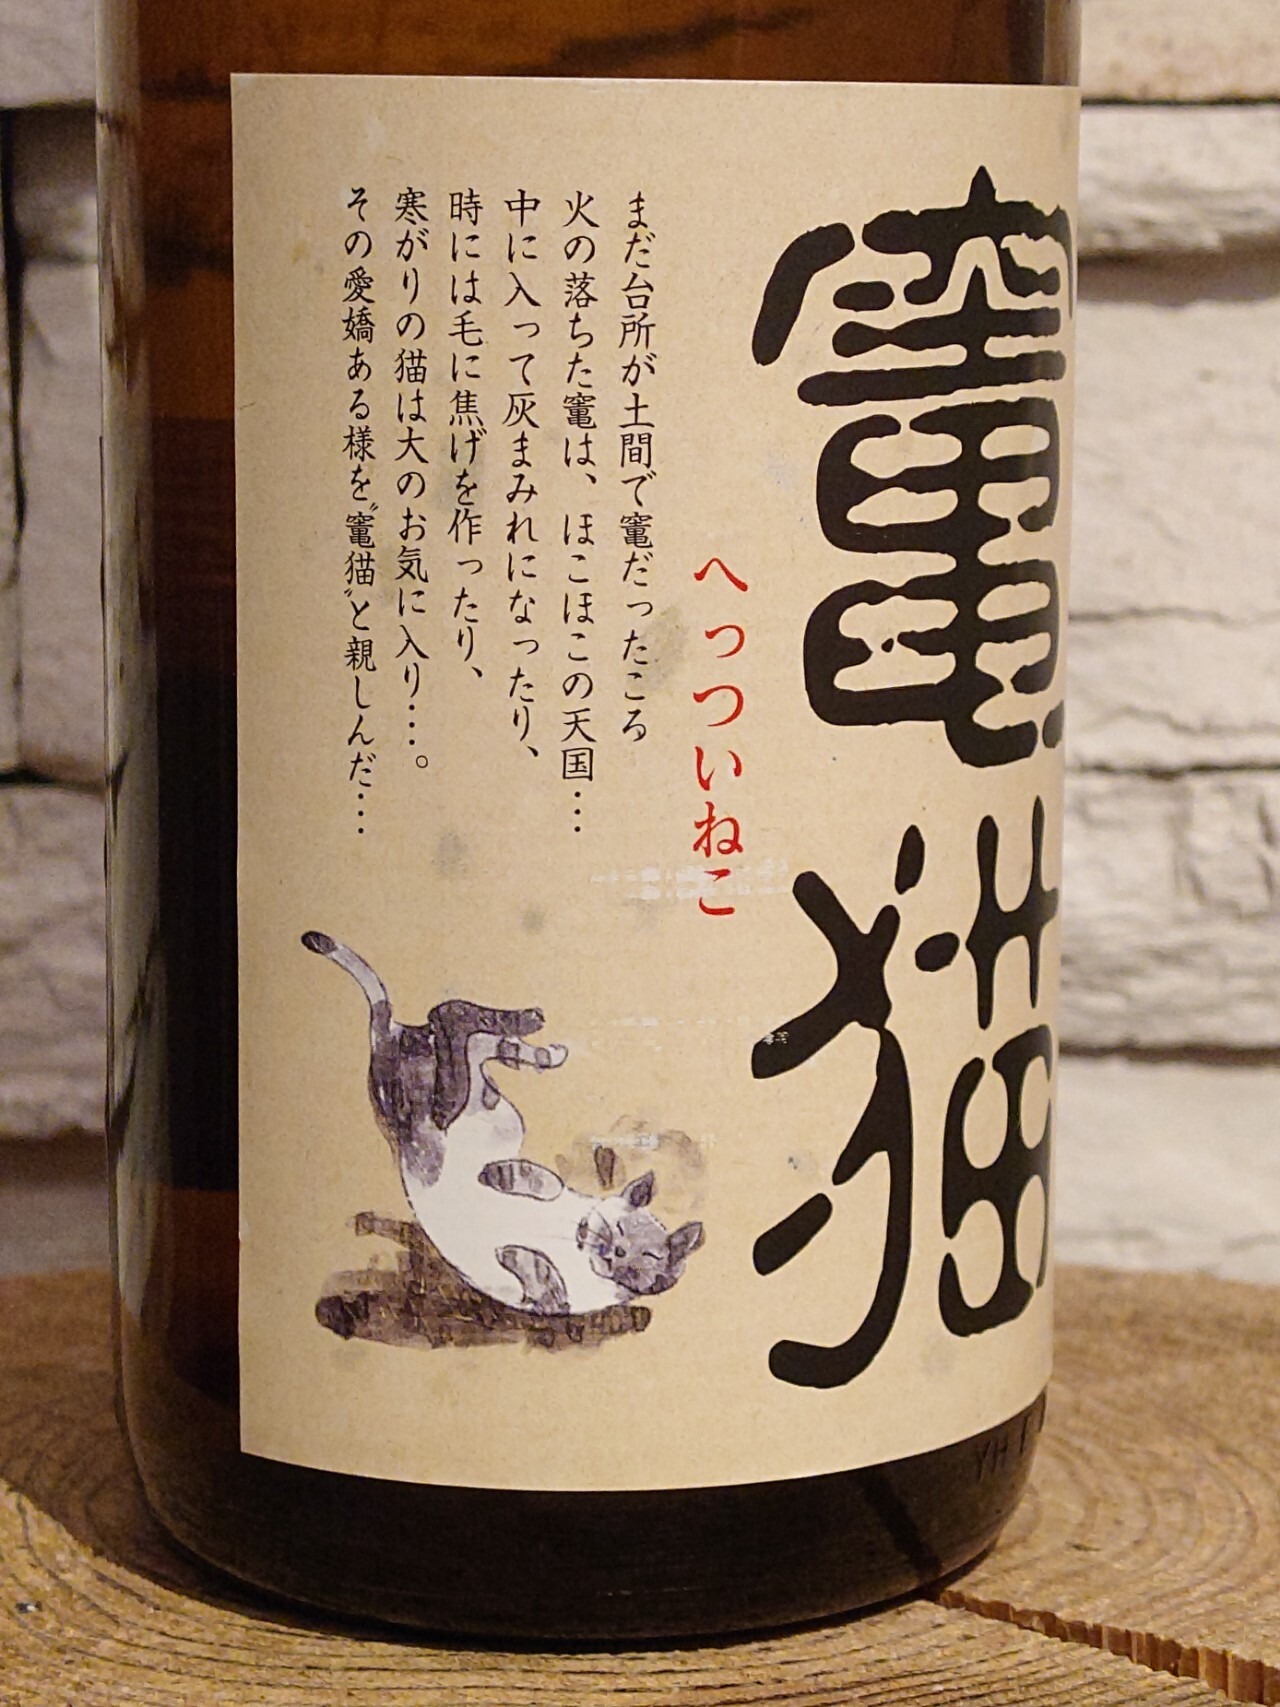 竈猫
へっついねこ
まだ台所が土間で竈だったころ
火の落ちた竈は、ほこほこの天国…
中に入って灰まみれになったり、
時には毛に焦げを作ったり、
寒がりの猫は大のお気に入り…。
その愛嬌ある様を〝竈猫〟と親しんだ…